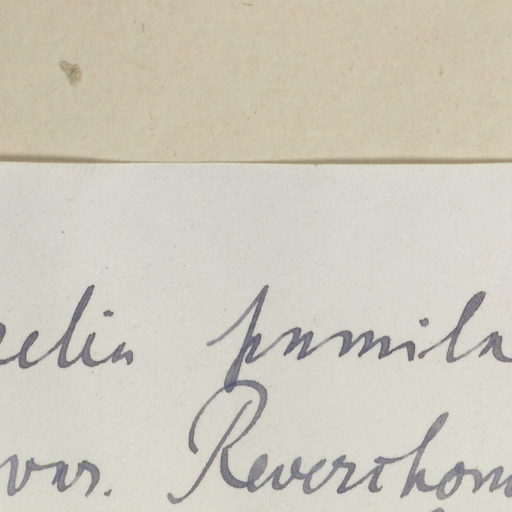 elia pumila
var. Reverchon